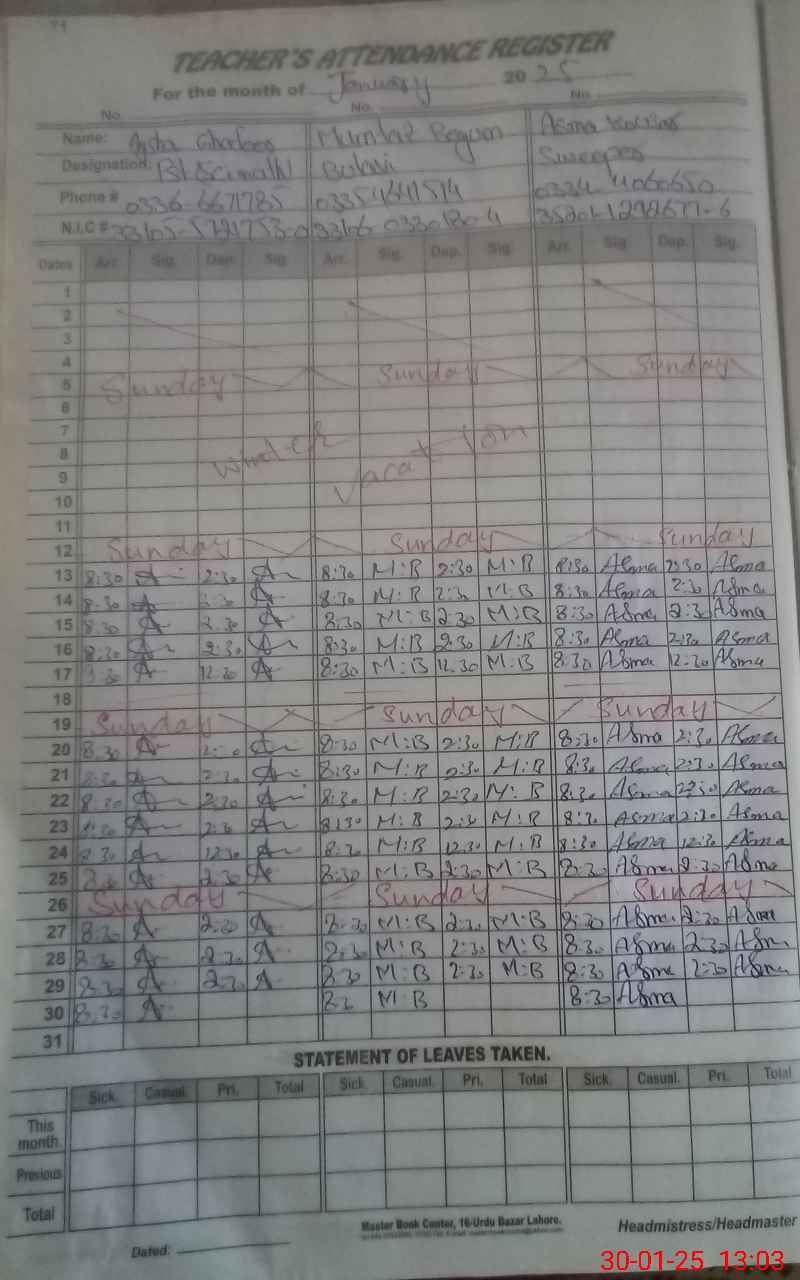 TEACHER'S ATTENDANCE REGISTER
For the month of January 2025
No. No. No.
Name: Mumtaz Begum Asma
Designation: Sweeper
Phone # 0336-6671785 0324 4060650
N.I.C #
Dates Arr. Sig. Dep. Sig. Arr. Sig. Dep. Sig. Arr. Sig. Dep. Sig.
1
2
3
4
5 Sunday Sunday Sunday
6
7
8 Winter Vacation
9
10
11
12 Sunday Sunday Sunday
13 8:30 2:30 8:30 M:B 2:30 M:B 8:30 Asma 2:30 Asma
14 8:30 2:30 8:30 M:B 2:30 M:B 8:30 Asma 2:30 Asma
15 8:30 2:30 8:30 M:B 2:30 M:B 8:30 Asma 2:30 Asma
16 8:30 2:30 8:30 M:B 2:30 M:B 8:30 Asma 2:30 Asma
17 8:30 12:30 8:30 M:B 12:30 M:B 8:30 Asma 12:30 Asma
18
19 Sunday Sunday Sunday
20 8:30 2:30 8:30 M:B 2:30 M:B 8:30 Asma 2:30 Asma
21 8:30 2:30 8:30 M:B 2:30 M:B 8:30 Asma 2:30 Asma
22 8:30 2:30 8:30 M:B 2:30 M:B 8:30 Asma 2:30 Asma
23 8:30 2:30 8:30 M:B 2:30 M:B 8:30 Asma 2:30 Asma
24 8:30 12:30 8:30 M:B 12:30 M:B 8:30 Asma 12:30 Asma
25 8:30 2:30 8:30 M:B 2:30 M:B 8:30 Asma 2:30 Asma
26 Sunday Sunday Sunday
27 8:30 2:30 8:30 M:B 2:30 M:B 8:30 Asma 2:30 Asma
28 8:30 2:30 8:30 M:B 2:30 M:B 8:30 Asma 2:30 Asma
29 8:30 2:30 8:30 M:B 2:30 M:B 8:30 Asma 2:30 Asma
30 8:30 8:30 M:B 8:30 Asma
31
STATEMENT OF LEAVES TAKEN.
Sick. Casual. Pri. Total Sick. Casual. Pri. Total Sick. Casual. Pri. Total
This month
Previous
Total
Master Book Center, 16-Urdu Bazar Lahore.
Headmistress/Headmaster
Dated:
30-01-25 13:03